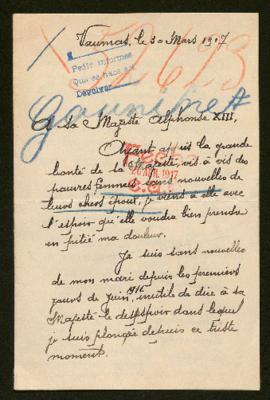 Vaumas, le 30 Mars 1917
52613
Pedir informes
Devolver
A sa Majesté Alphonse XIII,
Ayant appris la grande
bonté de sa Majesté, vis à vis des
pauvres femmes, sans nouvelles de
leurs chers époux, je viens à elle avec
26 ABR. 1917
l'espoir qu'elle voudra bien prendre
en pitié ma douleur.
Je suis sans nouvelles
de mon mari depuis les premiers
jours de Juin, 1916 inutile de dire à sa
Majesté le désespoir dans lequel
je suis plongée depuis ce triste
moment.